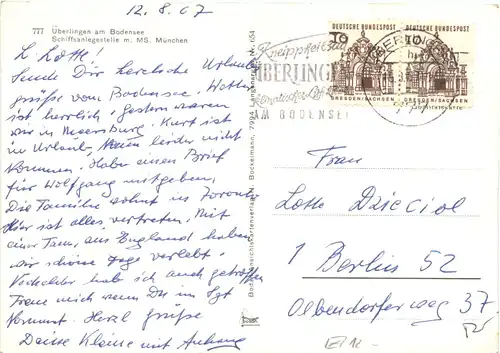 12.8.67
777 Überlingen am Bodensee
Schiffsanlegestelle m. MS. München
L. Lotte!
Sende Dir herzliche Urlaubs
grüße vom Bodensee. Wetter
ist herrlich, gestern waren
wir in Meersburg. Kurt ist
im Urlaub, kann leider nicht
kommen. Habe einen Brief
für Wolfgang mitgeben,
Die Familie wohnt in
Hier ist alles vertreten. Mit
einer Fam. aus England haben
wir schöne Tage verlebt.
hab ich auch getroffen
Freue mich wenn Du im Spt
kommst. Herzl. Grüße
Deine Kleine mit Anhang
Bodensee-Ansichtskartenverlag N. Bockelmann, 7994 Langenargen
DEUTSCHE BUNDESPOST
DEUTSCHE BUNDESPOST
DRESDEN/SACHSEN
DRESDEN/SACHSEN
Kneippheilbad
ÜBERLINGEN
AM BODENSEE
ÜBERLINGEN
Frau
Lotte Dzieciol
1 Berlin 52
Olbendorferweg 37